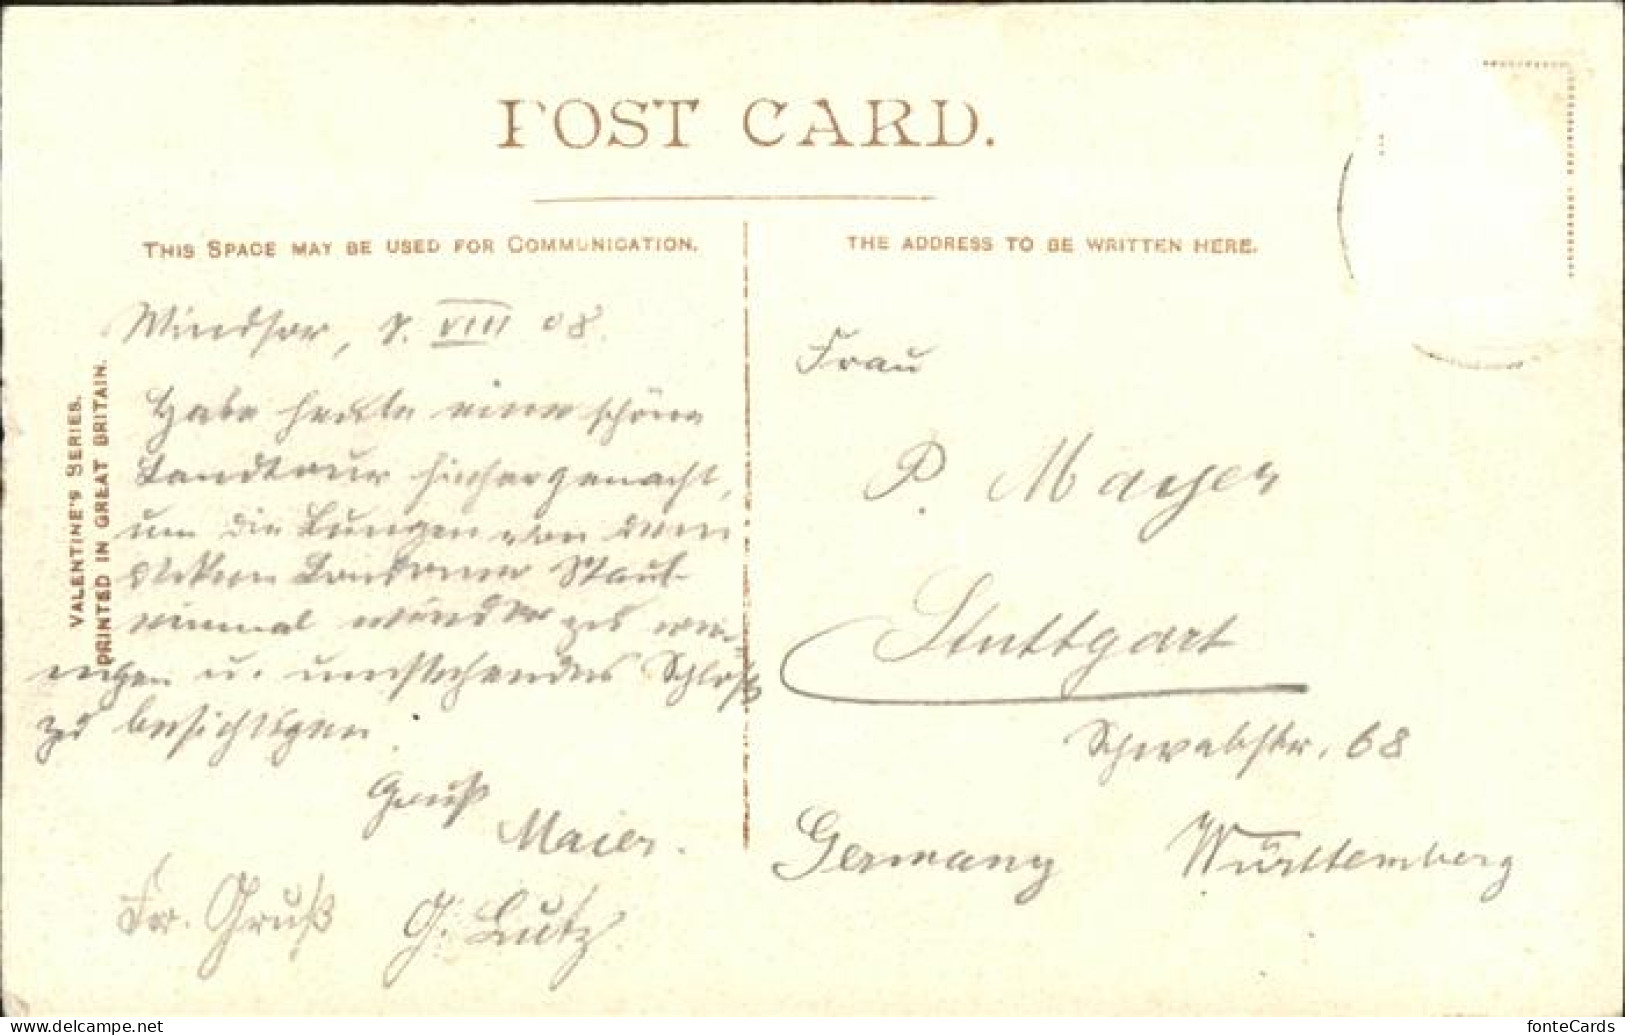 POST CARD.
THIS SPACE MAY BE USED FOR COMMUNICATION.
THE ADDRESS TO BE WRITTEN HERE.
VALENTINE'S SERIES.
PRINTED IN GREAT BRITAIN.
Windsor, 8. VIII 08.
Habe heute eine schöne
Landtour hierher gemacht,
um die Lungen von dem
dicken Londoner Staub
einmal wieder zu rei-
nigen u. umstehendes Schloß
zu besichtigen.
Gruß
Maier.
Fr. Gruß G. Lutz
Frau
P. Mayer
Stuttgart
Schwabstr. 68
Germany Württemberg
delcampe.net
fonteCards